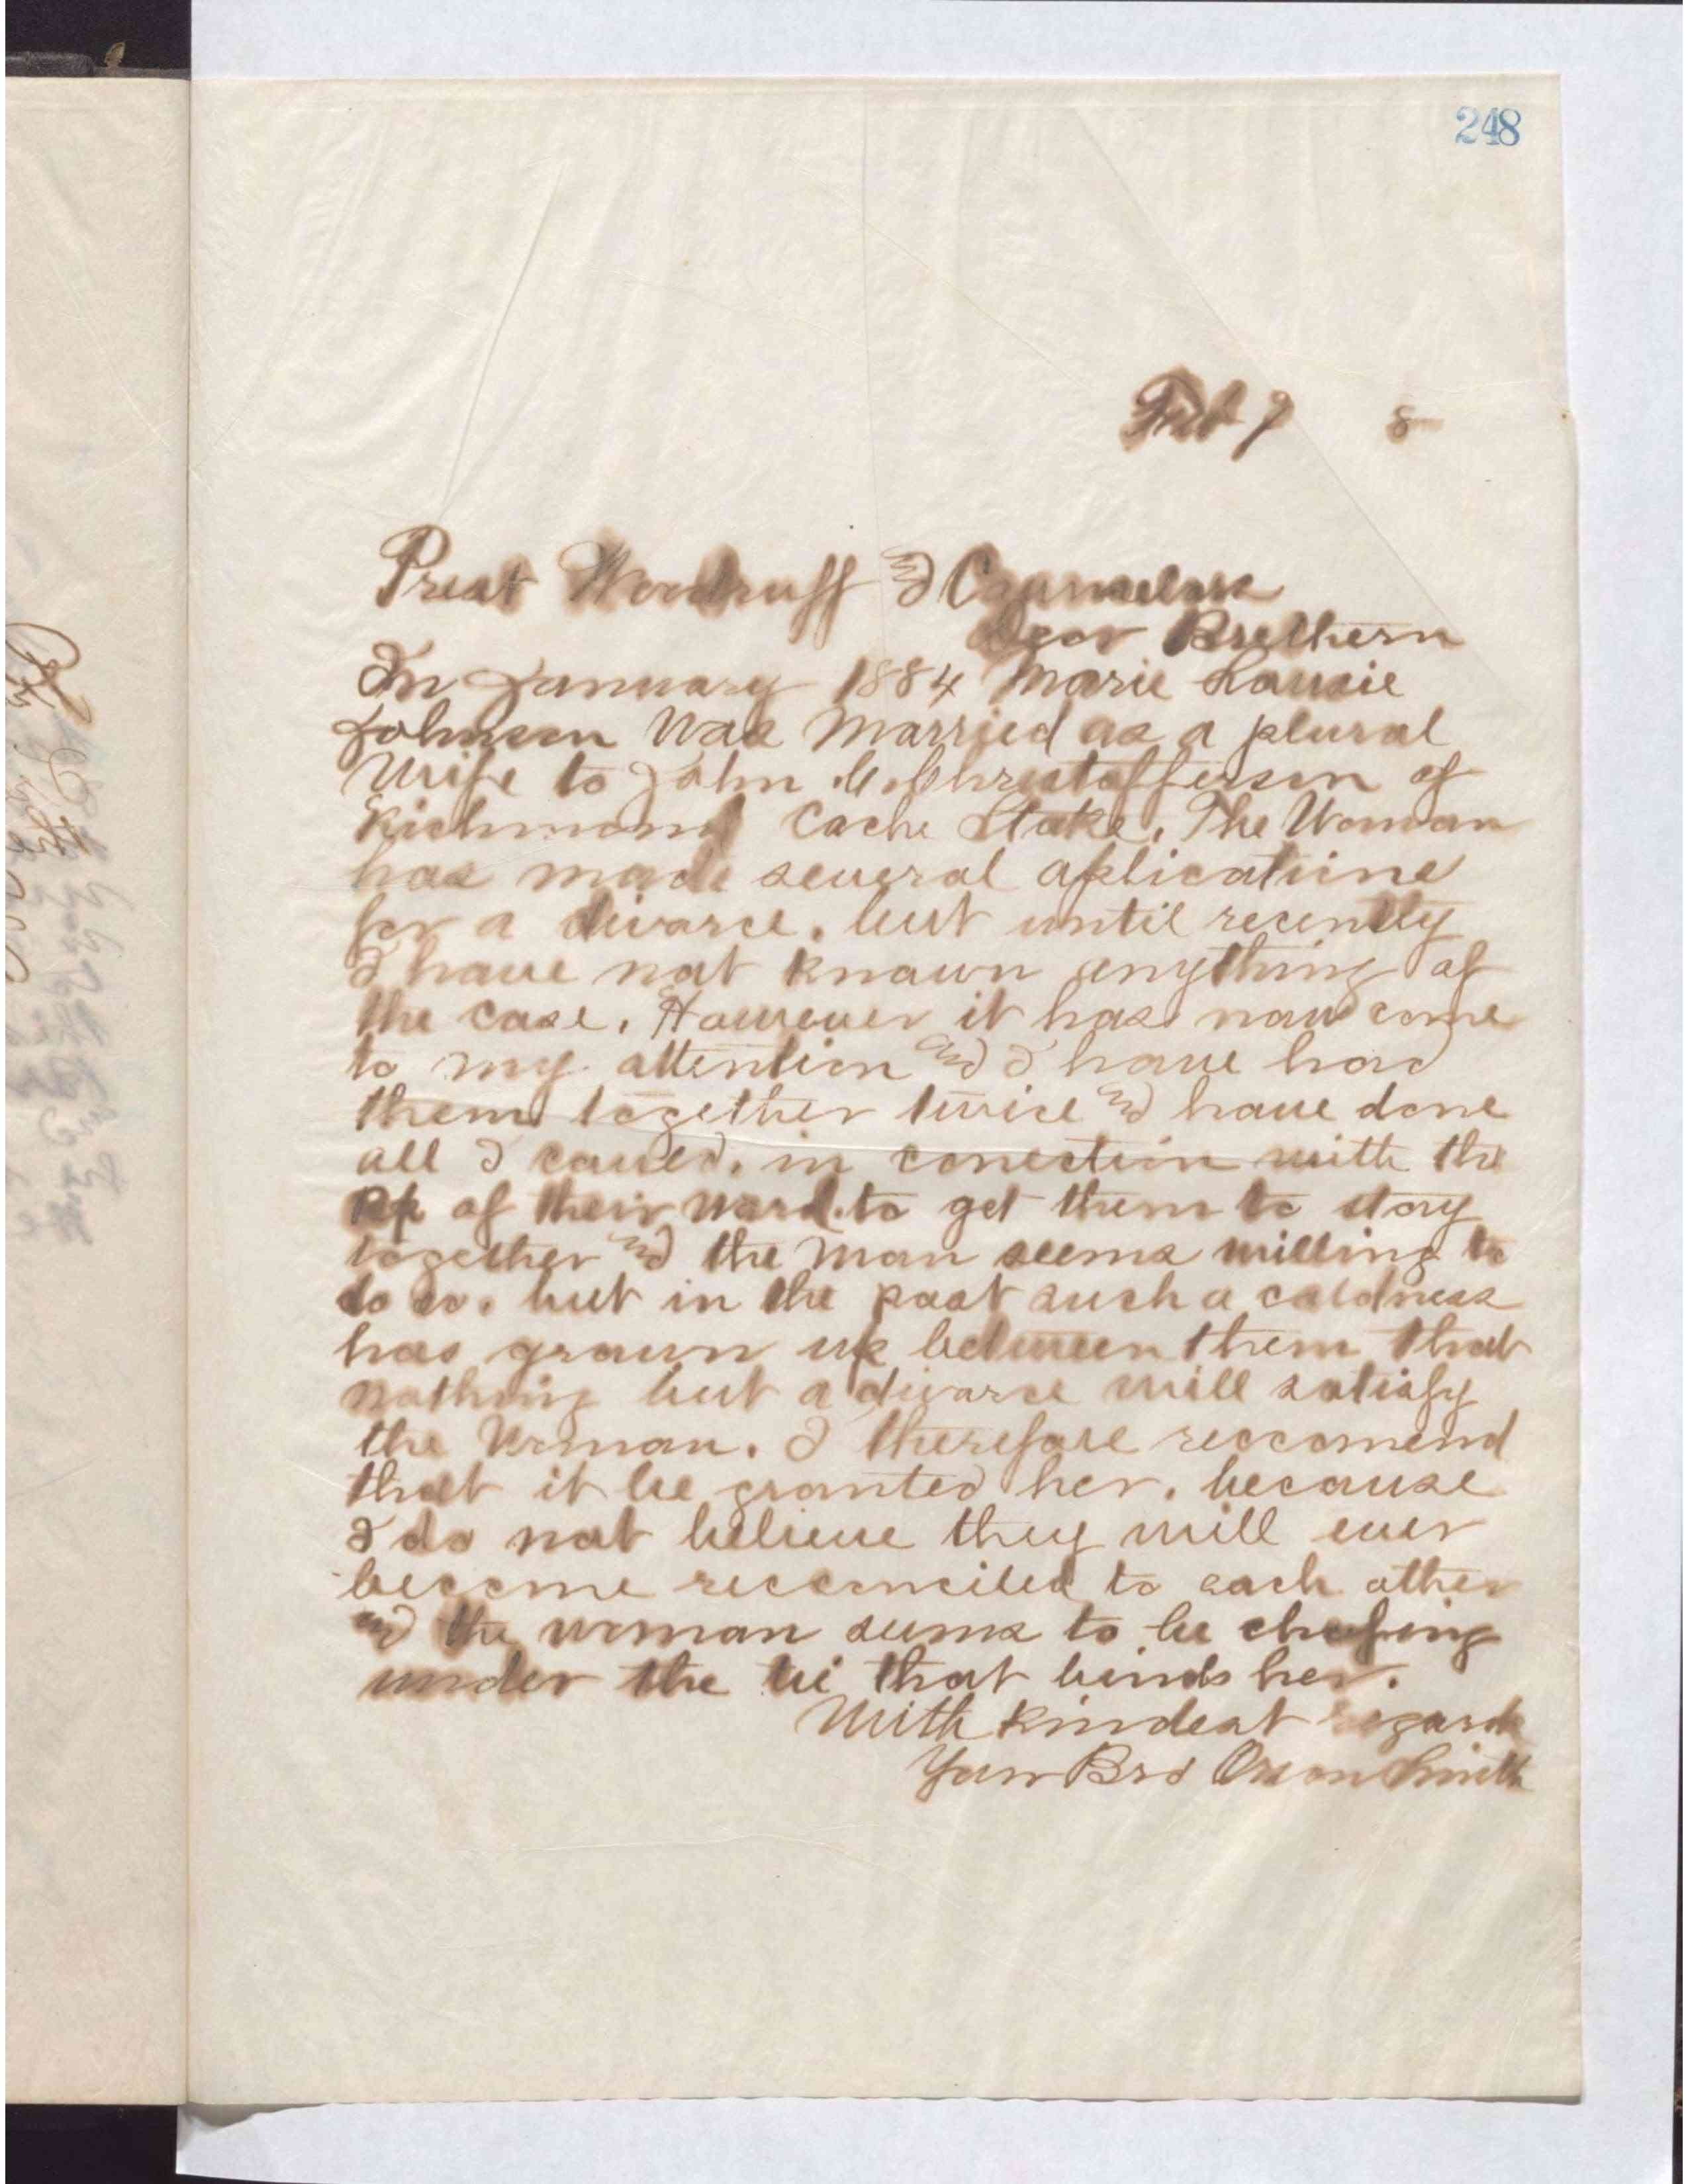 248
Feb 9 8
Prest Woodruff and Counselors
Dear Brethern
In January 1884 Marie Lousie
Johnson Was Married as a plural
Wife to John Christofferson of
Richmond Cache Stake. The Woman
has made several aplications
for a divorce. but until recently
I have not known anything of
the case. However it has now come
to my attention and I have had
them together twice and have done
all I could. in conection with the
Bp of their Ward. to get them to stay
together and the Man seems willing to
do so. but in the past such a coldness
has grown up between them that
nothing but a divorce will satisfy
the Woman. I therefore reccomend
that it be granted her. because
I do not believe they will ever
become reconciled to each other
and the woman seems to be chafing
under the tie that binds her.
With kindest regards
Your Bro Orson Smith